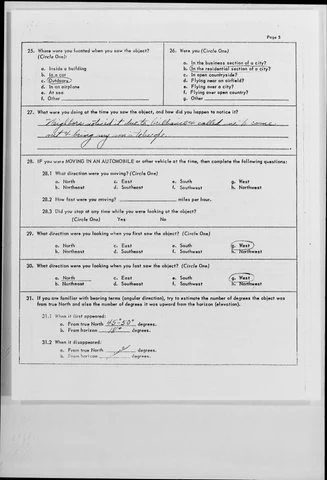 Page 5
25. Where were you located when you saw the object?
(Circle One):
a. Inside a building
b. In a car
c. Outdoors
d. In an airplane
e. At sea
f. Other
26. Were you (Circle One)
a. In the business section of a city?
b. In the residential section of a city?
c. In open countryside?
d. Flying near an airfield?
e. Flying over a city?
f. Flying over open country?
g. Other
27. What were you doing at the time you saw the object, and how did you happen to notice it?
Neighbors noticed it due to brilliance & called me to come
out & bring my son's telescope
28. IF you were MOVING IN AN AUTOMOBILE or other vehicle at the time, then complete the following questions:
28.1 What direction were you moving? (Circle One)
a. North c. East e. South g. West
b. Northeast d. Southeast f. Southwest h. Northwest
28.2 How fast were you moving? miles per hour.
28.3 Did you stop at any time while you were looking at the object?
(Circle One) Yes No
29. What direction were you looking when you first saw the object? (Circle One)
a. North c. East e. South g. West
b. Northeast d. Southeast f. Southwest h. Northwest
30. What direction were you looking when you last saw the object? (Circle One)
a. North c. East e. South g. West
b. Northeast d. Southeast f. Southwest h. Northwest
31. If you are familiar with bearing terms (angular direction), try to estimate the number of degrees the object was
from true North and also the number of degrees it was upward from the horizon (elevation).
31.1 When it first appeared:
a. From true North 45-50° degrees.
b. From horizon degrees.
31.2 When it disappeared:
a. From true North degrees.
b. From horizon degrees.